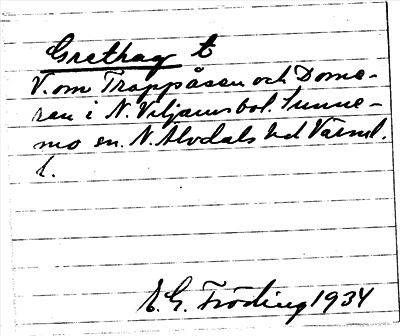 Grethag t
V. om Trappåsen och Dome-
ren i N. Viljamsbol. Sunne-
mo sn. N. Älvdals hd Värml.
l.
E. G. Fröding 1934